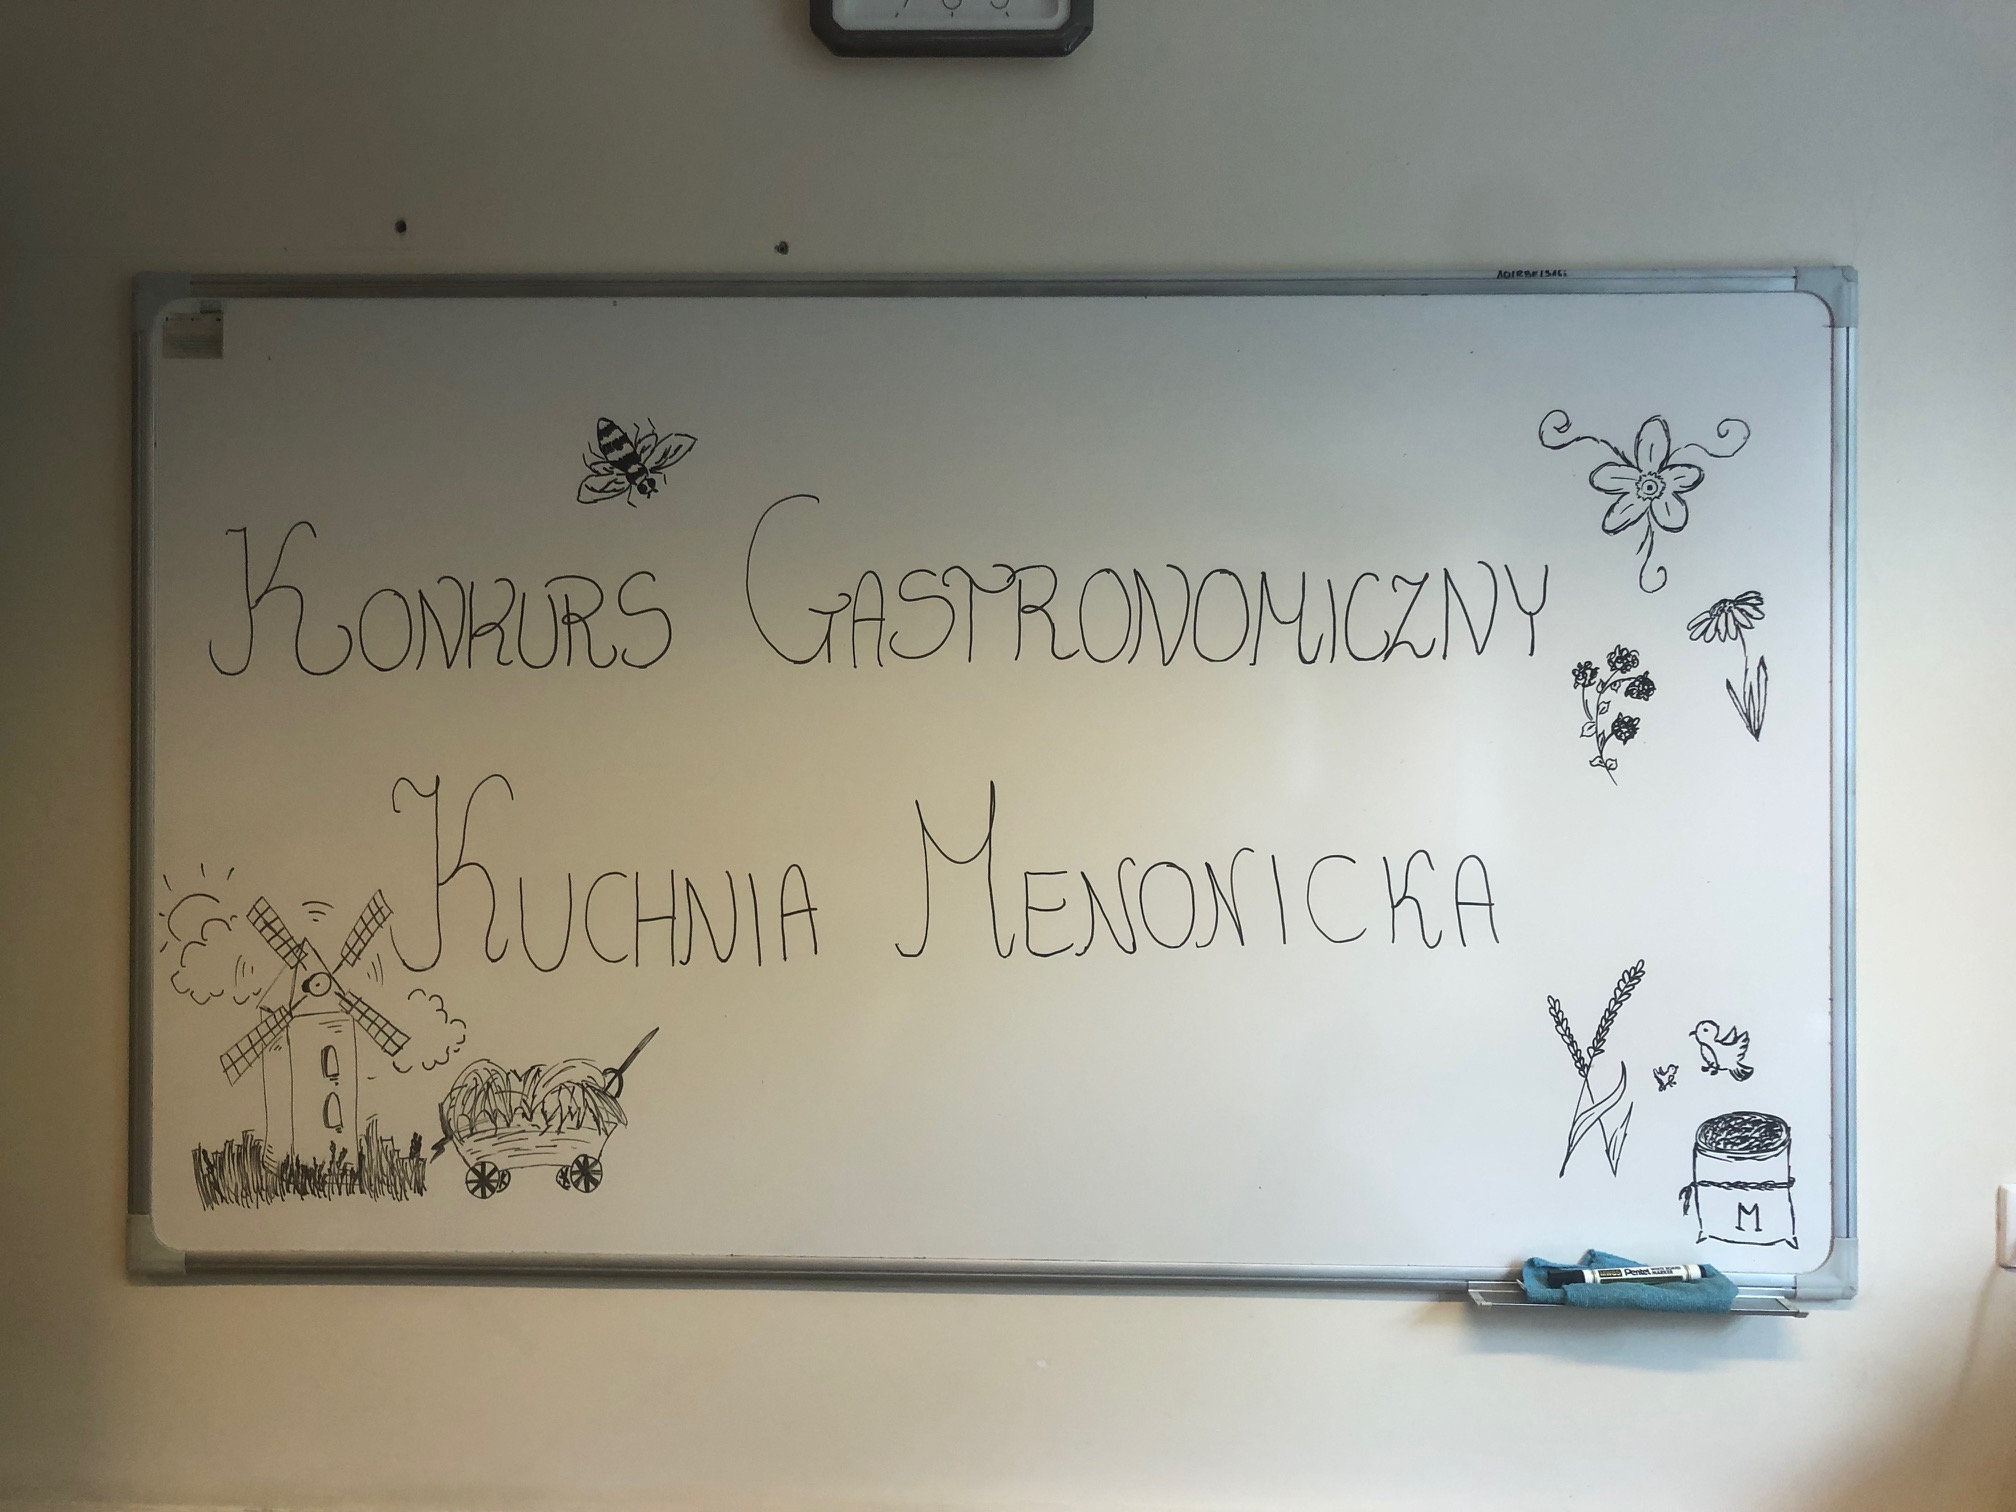 Konkurs Gastronomiczny
Kuchnia Menonicka
M
Pentel